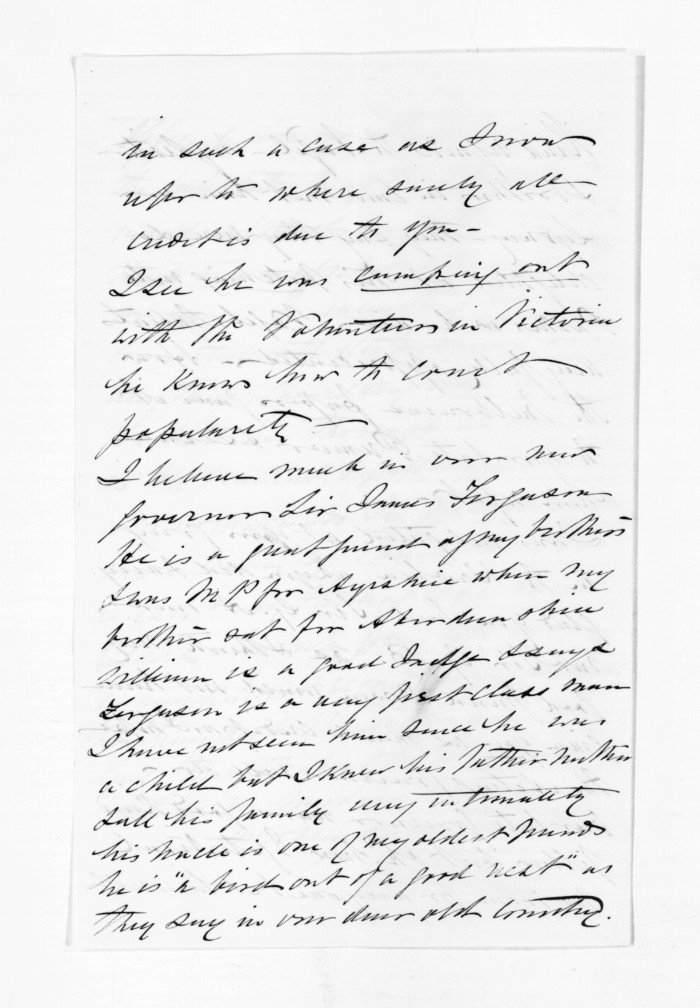 in such a case as I now
refer to where surely all
credit is due to you -
I see he was camping out
with the Volunteers in Victoria
he knows how to court
popularity -
I believe much in our new
Governor Sir James Ferguson
He is a great friend of my brothers
& was M P for Ayrshire when my
brother sat for Aberdeenshire
William is a good Judge & says
Ferguson is a very first class man
I have not seen him since he was
a child but I knew his father mother
& all his family very intimately
his Uncle is one of my oldest friends
he is "a bird out of a good nest" as
they say in our dear old Country.